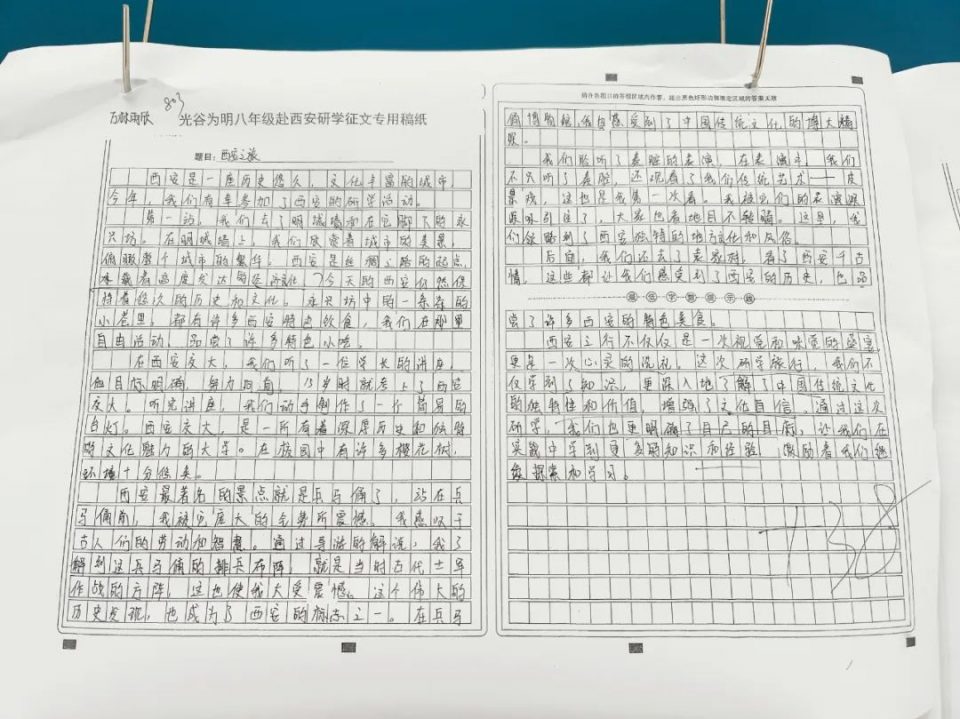 803
光谷为明八年级赴西安研学征文专用稿纸
题目：西安之旅
西安是一座历史悠久，文化丰富的城市，
今年，我们有幸参加了西安的研学活动。
第一站，我们去了明城墙和在它脚下的永
兴坊。在明城墙上，我们欣赏着城市的美景，
俯瞰整个城市的繁华，西安是丝绸之路的起点，
着高度发达 今天的西安依然保
持着悠久的历史和文化。永兴坊中的一条条的
小巷里，都有许多西安特色饮食，我们在那里
自由活动，品尝了许多特色小吃。
在西安交大，我们听了一位学长的讲座，
他目标明确，努力 15岁时就考上了西安
交大。听完讲座，我们动手制作了一个简易的
台灯。西安交大，是一所有着深厚历史和
文化魅力的大学。在校园中有许多樱花树，
环境十分优美。
西安最著名的景点就是兵马俑了，站在兵
马俑前，我被它庞大的气势所震撼。我感叹于
古人们的劳动和智慧。通过导游的解说，我了
解到这兵马俑的排兵布阵，就是当时古代士军
作战的方阵，这也使我大受震撼。这个伟大的
历史发现，也成为了西安的标志之一。在兵马
请在各题目的答题区域内作答，超出黑色矩形边框限定区域的答案无效
俑博物馆，我自感受到了中国传统文化的博大精
深。
我们聆听了秦腔的表演，在表演中，我们
不只听了秦腔，还观看了我们传统艺术——皮
影戏，这也是我第一次看。我被它们的表演深
深吸引住了，大家也看地目不转睛。这里，我
们领略到了西安独特的地方文化和风俗。
后面，我们还去了袁家村，看了西安千古
情，这些都让我们感受到了西安的历史，也品
尝了许多西安的特色美食。
西安之行不仅仅是一次视觉和味觉的盛宴，
更是一次心灵的洗礼。这次研学旅行，我们不
仅学到了知识，更深入地了解了中国传统文化
的独特性和价值，增强了文化自信。通过这次
研学，我们也更明确了自己的目标，让我们在
实践中学到更多的知识和经验，激励着我们继
续探索和学习。
738